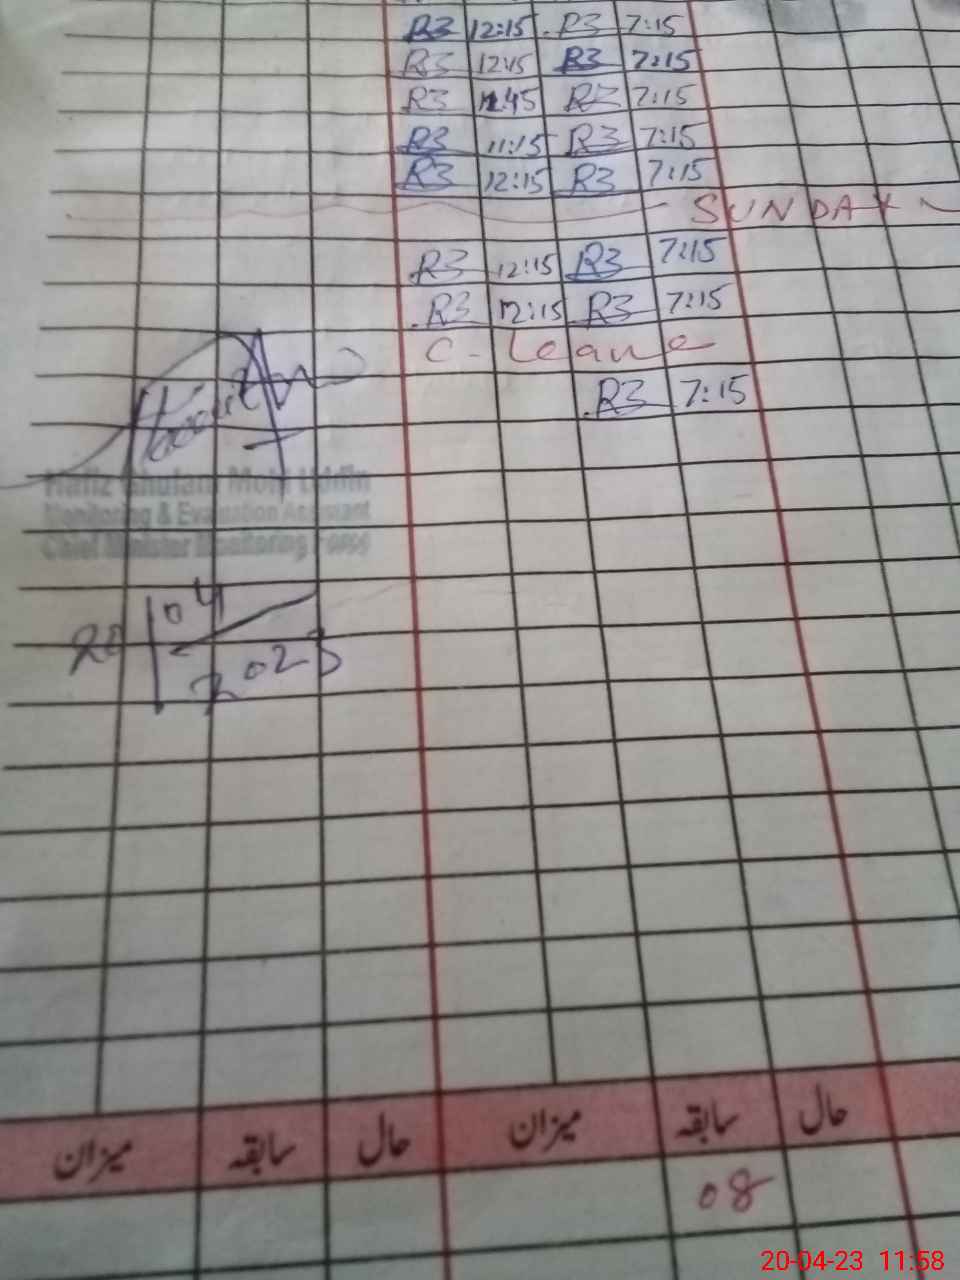 R3 12:15 R3 7:15
R3 12:45 R3 7:15
R3 12:45 R3 7:15
R3 11:15 R3 7:15
R3 12:15 R3 7:15
SUNDAY
R3 12:15 R3 7:15
R3 12:15 R3 7:15
C-Leave
R3 7:15
Hafiz Ghulam Mohi Uddin
Monitoring & Evaluation Assistant
Chief Minister Monitoring Force
20 04
2023
حال سابقہ میزان حال سابقہ میزان
08
20-04-23 11:58